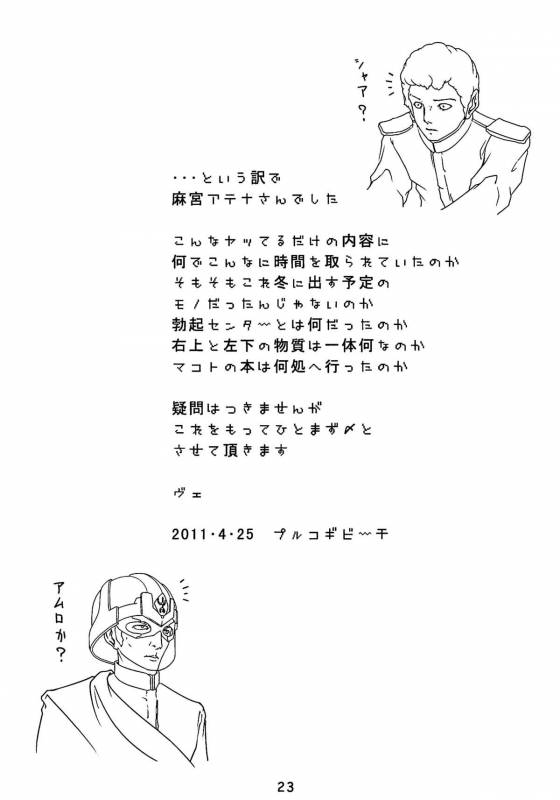 シャア？
・・・という訳で
麻宮アテナさんでした
こんなヤッてるだけの内容に
何でこんなに時間を取られていたのか
そもそもこれ冬に出す予定の
モノだったんじゃないのか
勃起センターとは何だったのか
右上と左下の物質は一体何なのか
マコトの本は何処へ行ったのか
疑問はつきませんが
これをもってひとまず〆と
させて頂きます
ヴェ
2011・4・25　プルコギビーチ
アムロか？
23